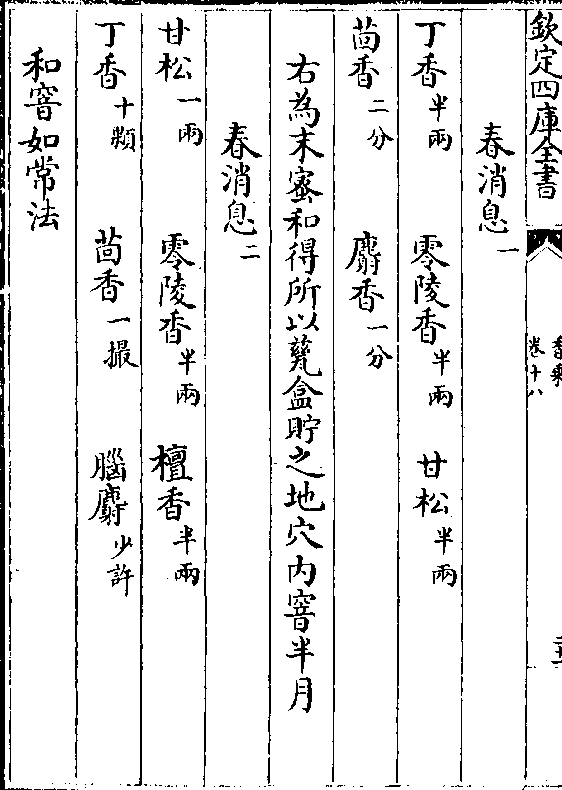 欽定四庫全書
卷十八
春消息一
丁香半兩 零陵香半兩 甘松半兩
茴香二分 麝香一分
右為末蜜和得所以甆盒貯之地穴內窨半月
春消息二
甘松一兩 零陵香半兩 檀香半兩
丁香十顆 茴香一撮 腦麝少許
和窨如常法